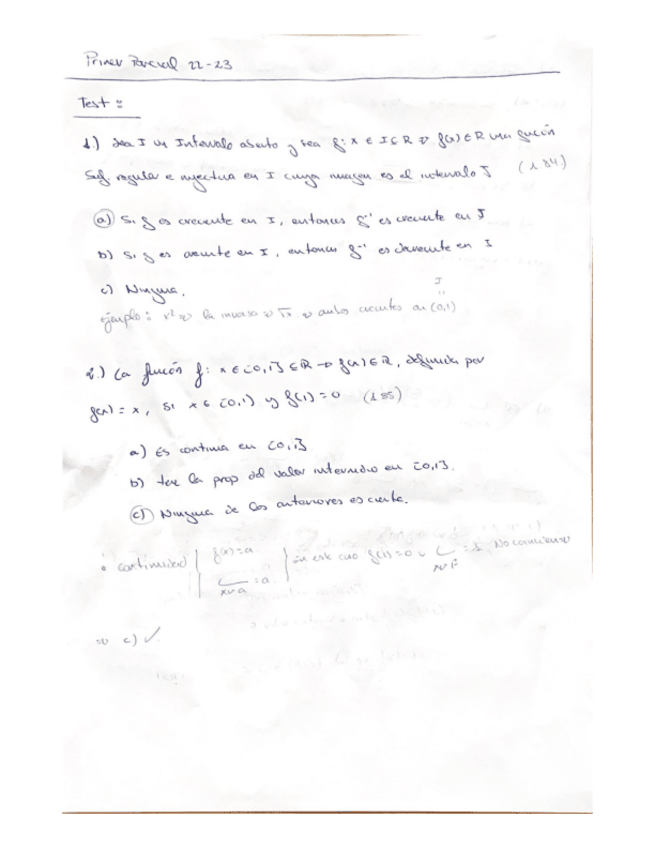 Primer Parcial 22-23
Test:
1.) Sea I un Intervalo abierto y sea f: x ∈ I ⊆ R → f(x) ∈ R una función
Suf. regular e inyectiva en I cuya imagen es el intervalo J (184)
a) Si f es creciente en I, entonces f⁻¹ es creciente en J
b) Si f es creciente en I, entonces f⁻¹ es decreciente en I
c) Ninguna.
ejemplo: x² → la inversa → √x → ambas crecientes en (0,1)
I
"
2.) La función f: x ∈ [0,1] ⊆ R → f(x) ∈ R, definida por
f(x) = x, si x ∈ [0,1) y f(1) = 0 (185)
a) Es continua en [0,1].
b) tiene la prop del valor intermedio en [0,1].
c) Ninguna de las anteriores es cierta.
continuidad f(x)=a en este caso f(1)=0 = 1 No
x→a = a x→1⁻
⇒ c) ✓